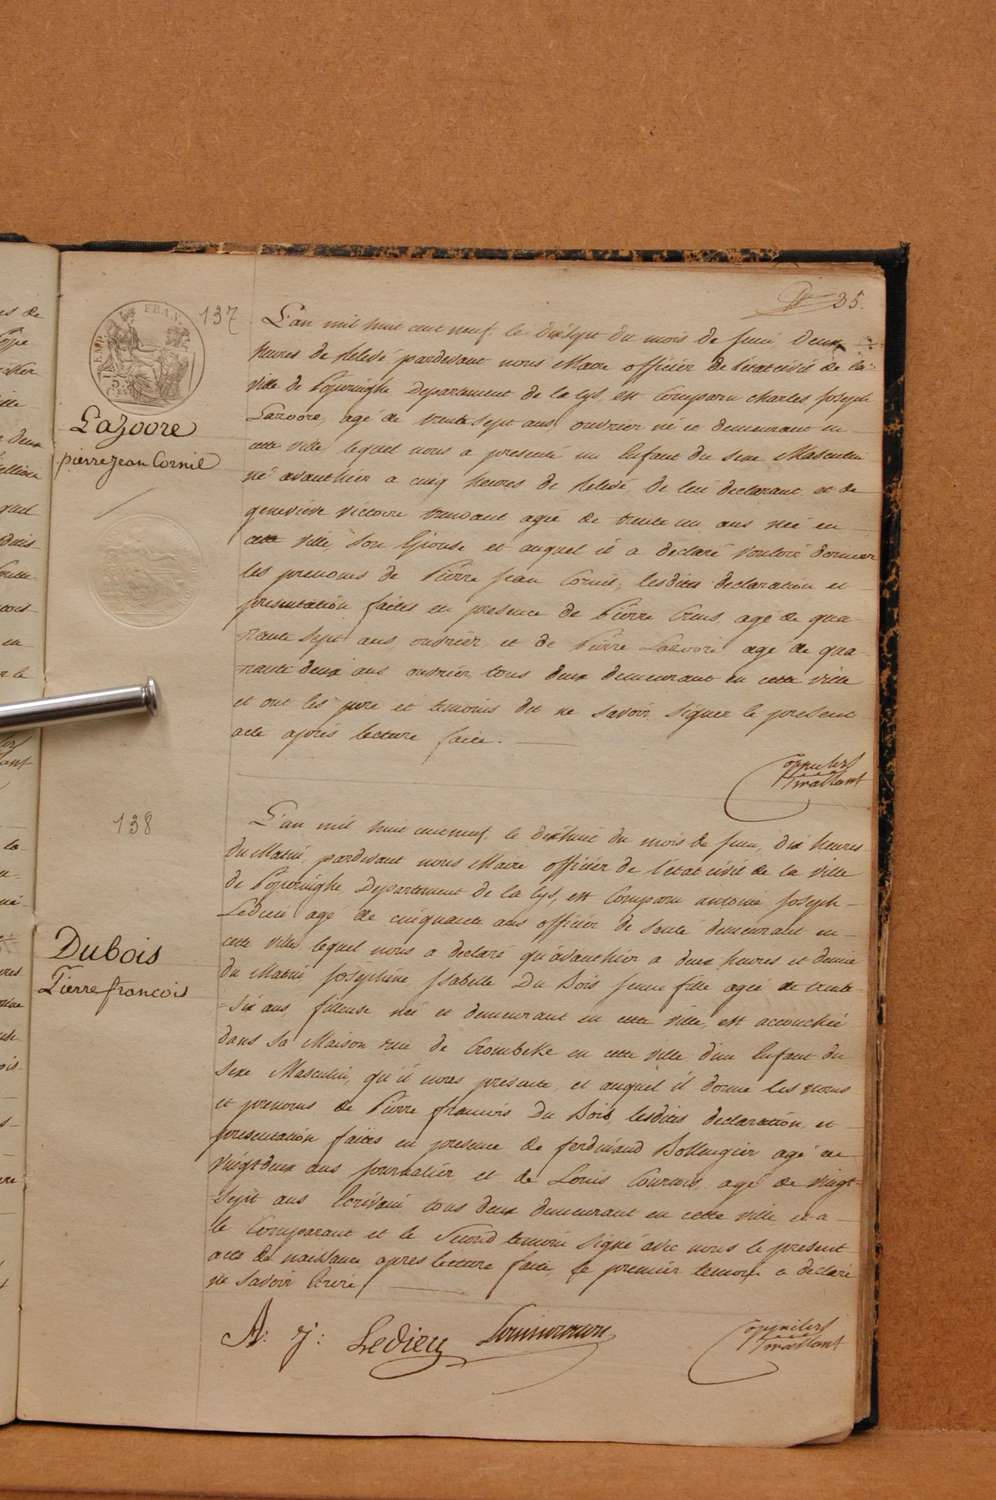 35.
137
Lazoore
pierre Jean Cornil
L'an mil huit cent neuf le dix sept du mois de juin deux
heures de Relevé pardevant nous Maire officier de l'état civil de la
ville de Poperinghe Departement de la Lys, est Comparu charles joseph
Lazoore, agé de trente sept ans ouvrier né et demeurant en
cette ville lequel nous a presenté un Enfant du sexe Masculin
né avanthier a cinq heures de Relevé de lui declarant et de
geneviève victoire agée de trente un ans née en
cette ville, Son Epouse et auquel il a declaré vouloir donner
les prenoms de Pierre Jean Cornil, lesdites declaration et
presentation faites en presence de Pierre agé de qua-
rante sept ans ouvrier, et de Pierre Lazoore agé de qua-
rante deux ans ouvrier, tous deux demeurant en cette ville
et ont les pere et temoins dit ne savoir signer le present
acte après lecture faite.
138
Dubois
Pierre francois
L'an mil huit cent neuf le dixhuit du mois de juin, dix heures
du Matin, pardevant nous Maire officier de l'état civil de la ville
de Poperinghe Departement de la Lys, est Comparu antoine Joseph
Ledieu agé de cinquante ans officier de santé demeurant en
cette ville lequel nous a declaré qu'avanthier a deux heures et demie
du Matin Josephine Isabelle Du Bois jeune fille agée de trente
-six ans fileuse née et demeurant en cette ville, est accouchée
dans sa Maison rue de Crombeke en cette ville, d'un Enfant du
Sexe Masculin, qu'il nous presente, et auquel il donne les noms
et prenoms de Pierre francois Du Bois, lesdites declaration et
presentation faites en presence de ferdinand agé de
vingt deux ans journalier, et de Louis agé de vingt-
-sept ans Ecrivain tous deux demeurant en cette ville et a
le Comparant et le Second temoin signé avec nous le present
acte de naissance après lecture faite, le premier temoin a declaré
ne savoir Ecrire
A: J: Ledieu